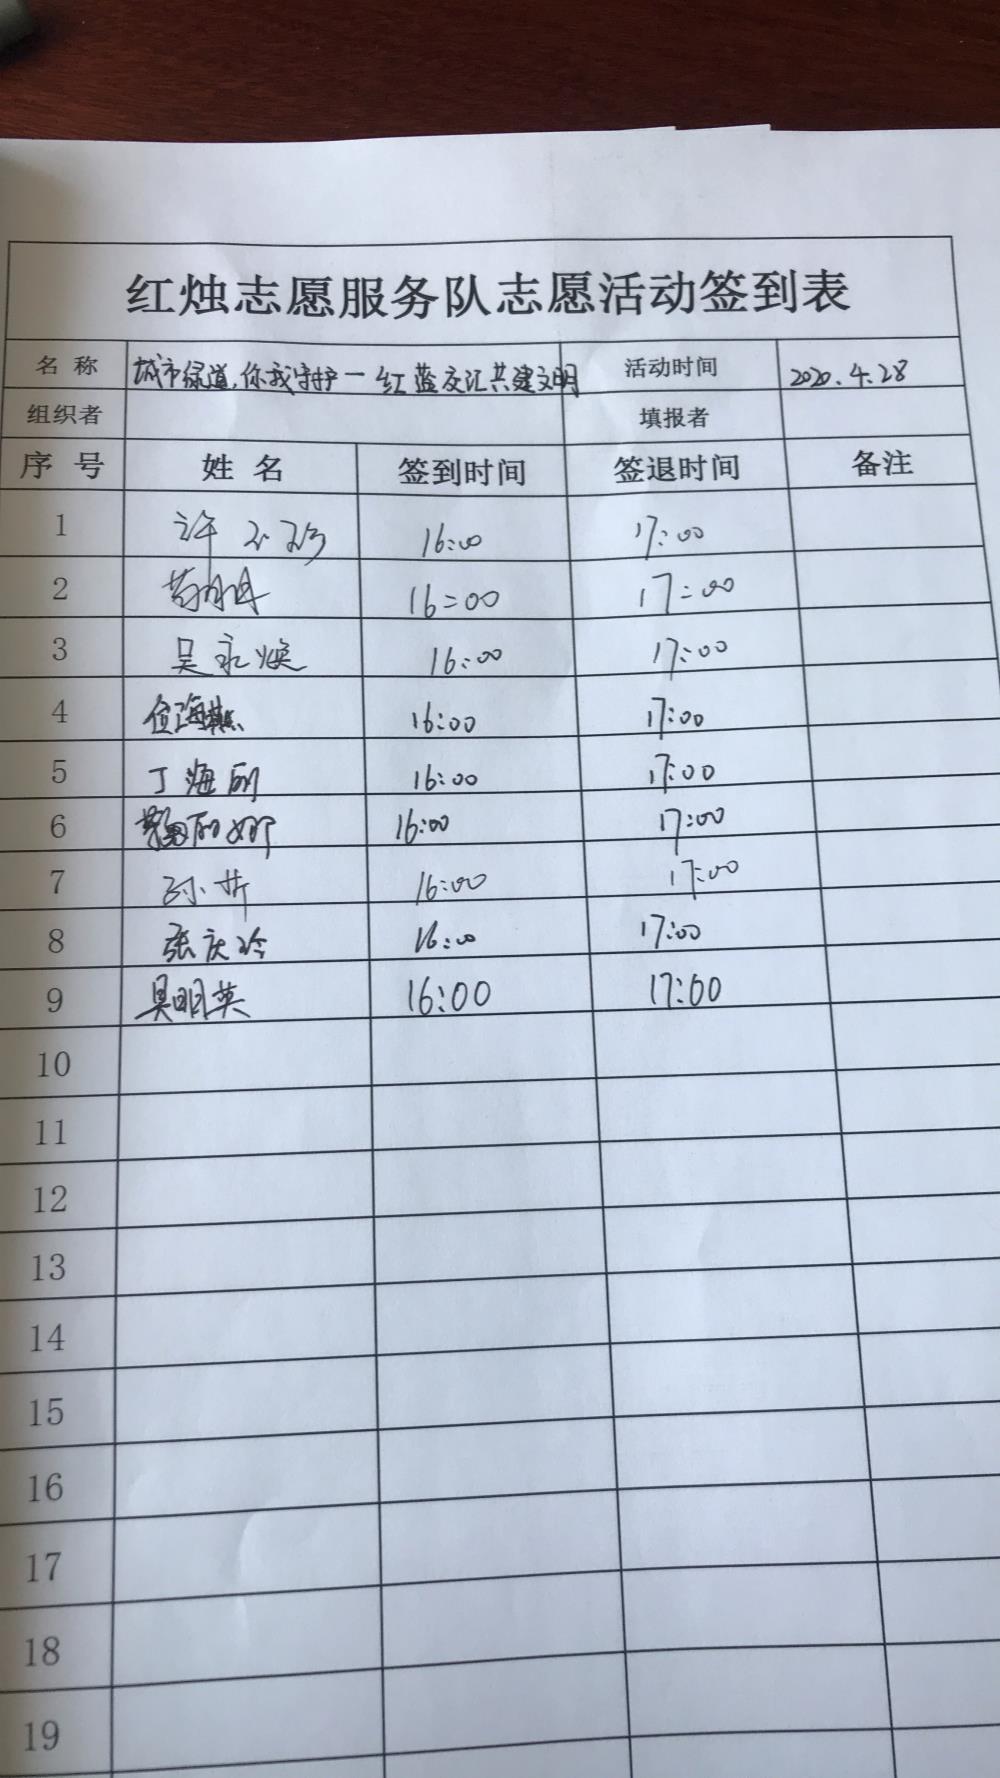 红烛志愿服务队志愿活动签到表
名 称 城市绿道,你我守护一红蓝交汇共建文明 活动时间 2020.4.28
组织者 填报者
序 号 姓 名 签到时间 签退时间 备注
1 许 16:00 17:00
2 16:00 17:00
3 吴永焕 16:00 17:00
4 16:00 17:00
5 丁海丽 16:00 17:00
6 丽娜 16:00 17:00
7 孙 16:00 17:00
8 张庆玲 16:00 17:00
9 吴明英 16:00 17:00
10
11
12
13
14
15
16
17
18
19